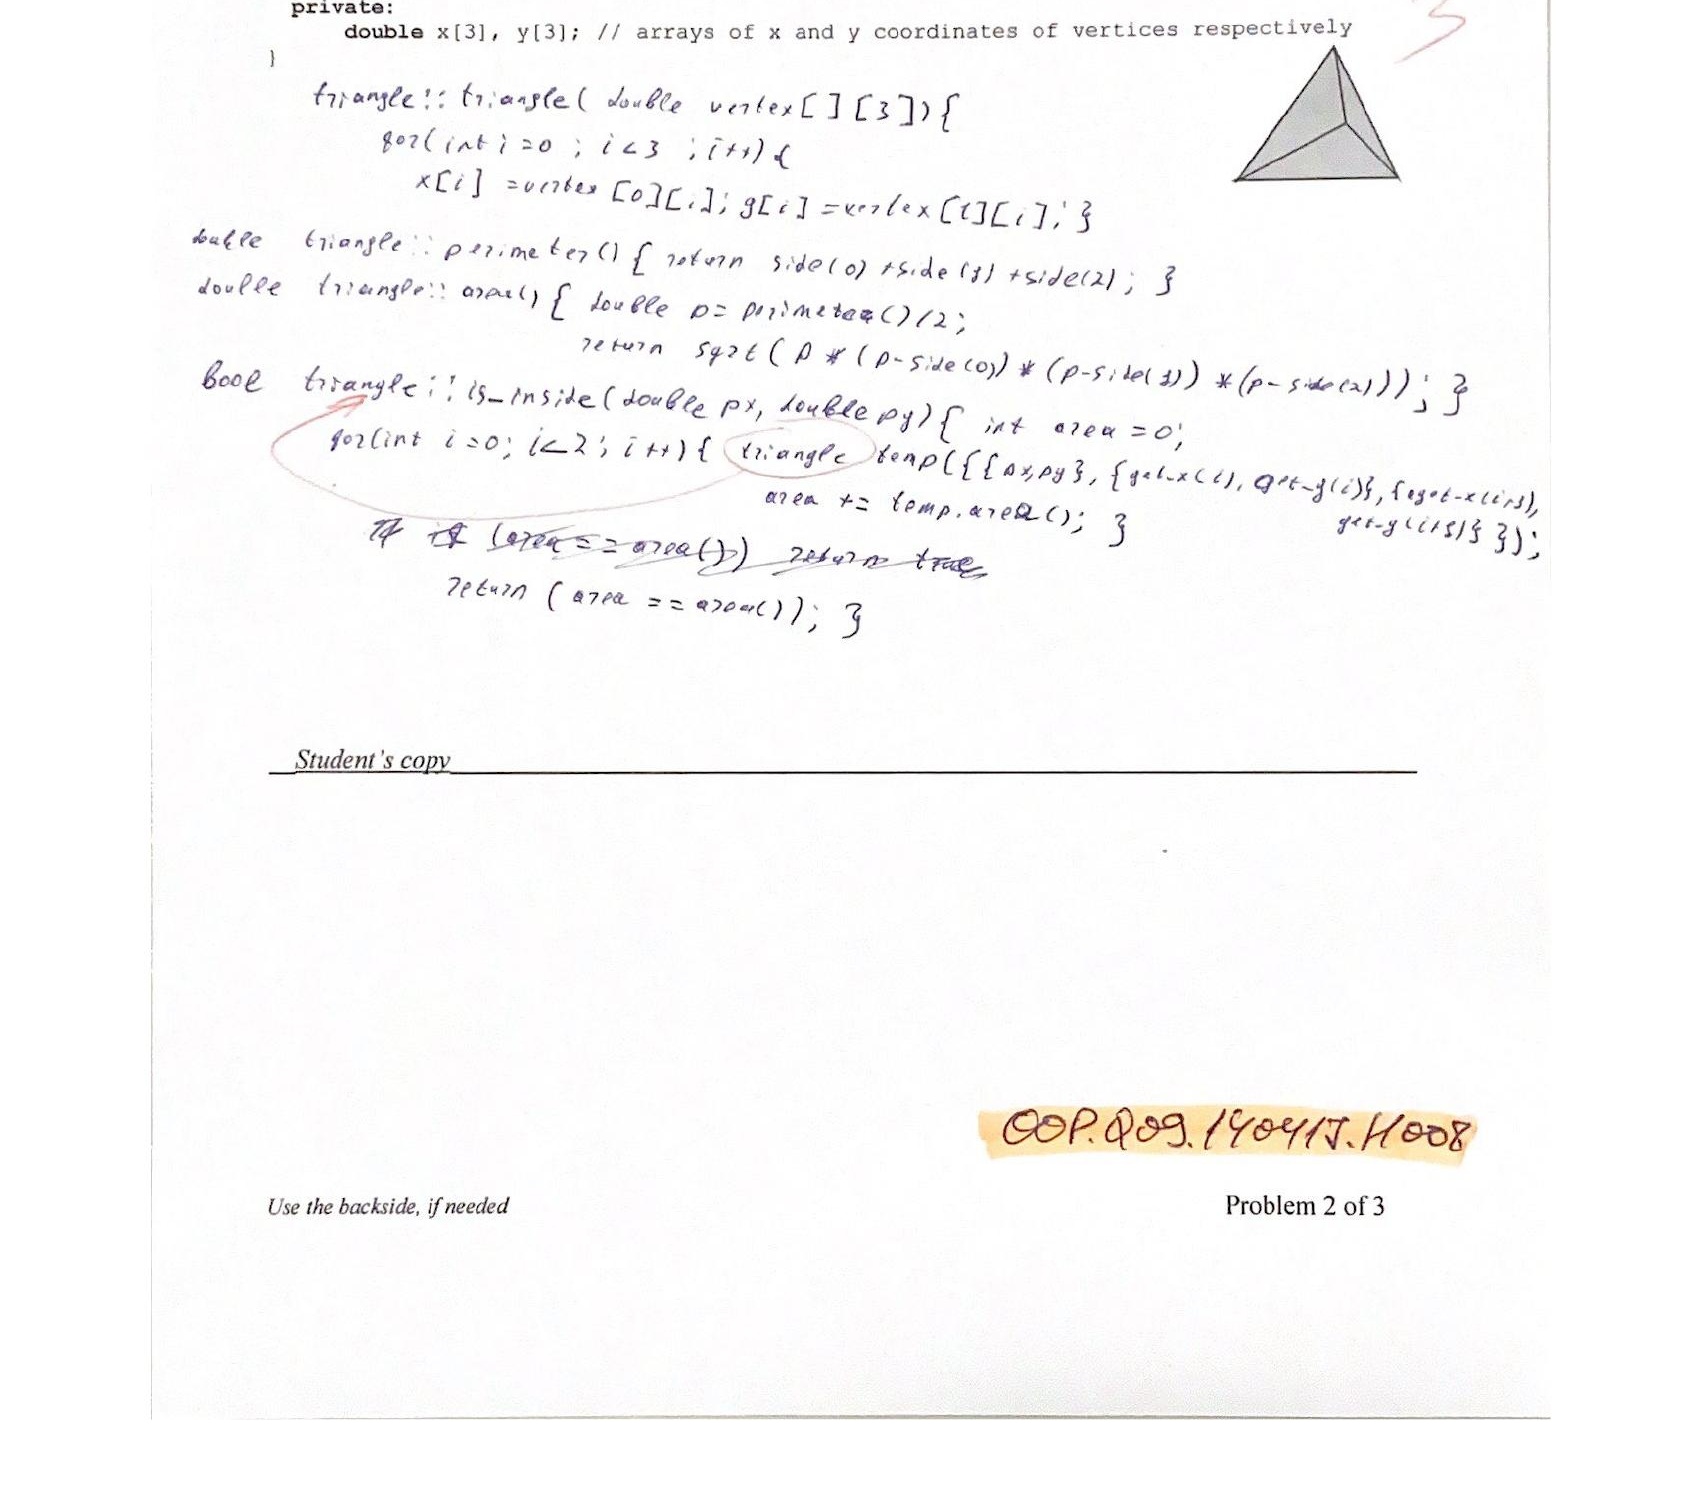 private:
double x[3], y[3]; // arrays of x and y coordinates of vertices respectively
}
3
triangle::triangle( double vertex[][3]){
for(int i=0 ; i<3 ; i++) {
x[i] = vertex [0][i]; y[i] = vertex [1][i]; }
double triangle:: perimeter() { return side(0) + side(1) + side(2); }
double triangle:: area() { double p= perimeter()/2;
return sqrt( p * (p-side(0)) * (p-side(1)) * (p-side(2))); }
bool triangle:: is_inside(double px, double py) { int area =0;
for(int i=0; i<2; i++) { triangle temp({{px,py}, {get-x(i), get-y(i)}, {get-x(i+1),
get-y(i+1)} });
area += temp.area(); }
if (area == area()) return true
return ( area == area()); }
Student's copy
OOP.Q09.140415.H008
Use the backside, if needed
Problem 2 of 3